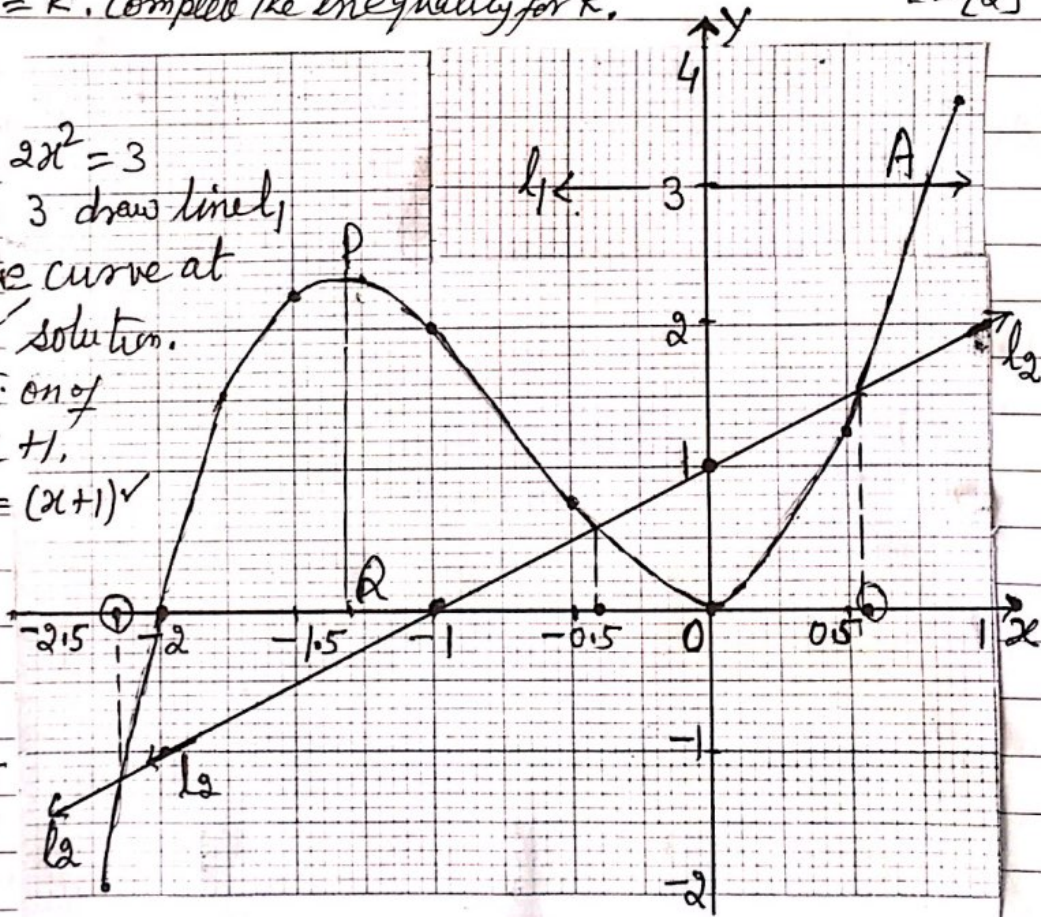 = k. Complete the inequality for k. [2]
y
4
2x² = 3
3 draw line l₁
e curve at
✓ solution.
on of
+1.
= (x+1)✓
l₁ 3 A
P
2
l₂
1
Q
-2.5 -2 -1.5 -1 -0.5 0 0.5 1 x
-1
l₂
l₂
-2